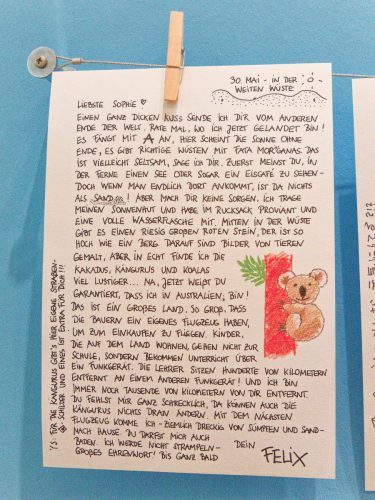 30. MAI - IN DER
WEITEN WÜSTE
LIEBSTE SOPHIE
EINEN GANZ DICKEN KUSS SENDE ICH DIR VOM ANDEREN
ENDE DER WELT. RATE MAL, WO ICH JETZT GELANDET BIN!
ES FÄNGT MIT A AN, HIER SCHEINT DIE SONNE OHNE
ENDE, ES GIBT RICHTIGE WÜSTEN MIT FATA MORGANAS. DAS
IST VIELLEICHT SELTSAM, SAGE ICH DIR. ZUERST MEINST DU, IN
DER FERNE EINEN SEE ODER SOGAR EIN EISCAFÉ ZU SEHEN-
DOCH WENN MAN ENDLICH DORT ANKOMMT, IST DA NICHTS
ALS SAND! ABER MACH DIR KEINE SORGEN. ICH TRAGE
MEINEN SONNENHUT UND HABE IM RUCKSACK PROVIANT UND
EINE VOLLE WASSERFLASCHE MIT. MITTEN IN DER WÜSTE
GIBT ES EINEN RIESIG GROßEN ROTEN STEIN, DER IST SO
HOCH WIE EIN BERG. DARAUF SIND BILDER VON TIEREN
GEMALT, ABER IN ECHT FINDE ICH DIE
KAKADUS, KÄNGURUS UND KOALAS
VIEL LUSTIGER... NA, JETZT WEIßT DU
GARANTIERT, DASS ICH IN AUSTRALIEN, BIN!
DAS IST EIN GROßES LAND. SO GROß, DASS
DIE BAUERN EIN EIGENES FLUGZEUG HABEN,
UM ZUM EINKAUFEN ZU FLIEGEN. KINDER,
DIE AUF DEM LAND WOHNEN, GEHEN NICHT ZUR
SCHULE, SONDERN BEKOMMEN UNTERRICHT ÜBER
EIN FUNKGERÄT. DIE LEHRER SITZEN HUNDERTE VON KILOMETERN
ENTFERNT AN EINEM ANDEREN FUNKGERÄT! UND ICH BIN
IMMER NOCH TAUSENDE VON KILOMETERN VON DIR ENTFERNT.
DU FEHLST MIR GANZ SCHRECKLICH, DA KÖNNEN AUCH DIE
KÄNGURUS NICHTS DRAN ÄNDERN. MIT DEM NÄCHSTEN
FLUGZEUG KOMME ICH - ZIEMLICH DRECKIG VON SÜMPFEN UND SAND-
NACH HAUSE. DU DARFST MICH AUCH
BADEN. ICH WERDE NICHT STRAMPELN-
GROßES EHRENWORT! BIS GANZ BALD
DEIN
FELIX
FÜR DIE KÄNGURUS GIBT'S HIER EIGENE STRAßEN-
SCHILDER UND EINES IST EXTRA FÜR DICH!!!